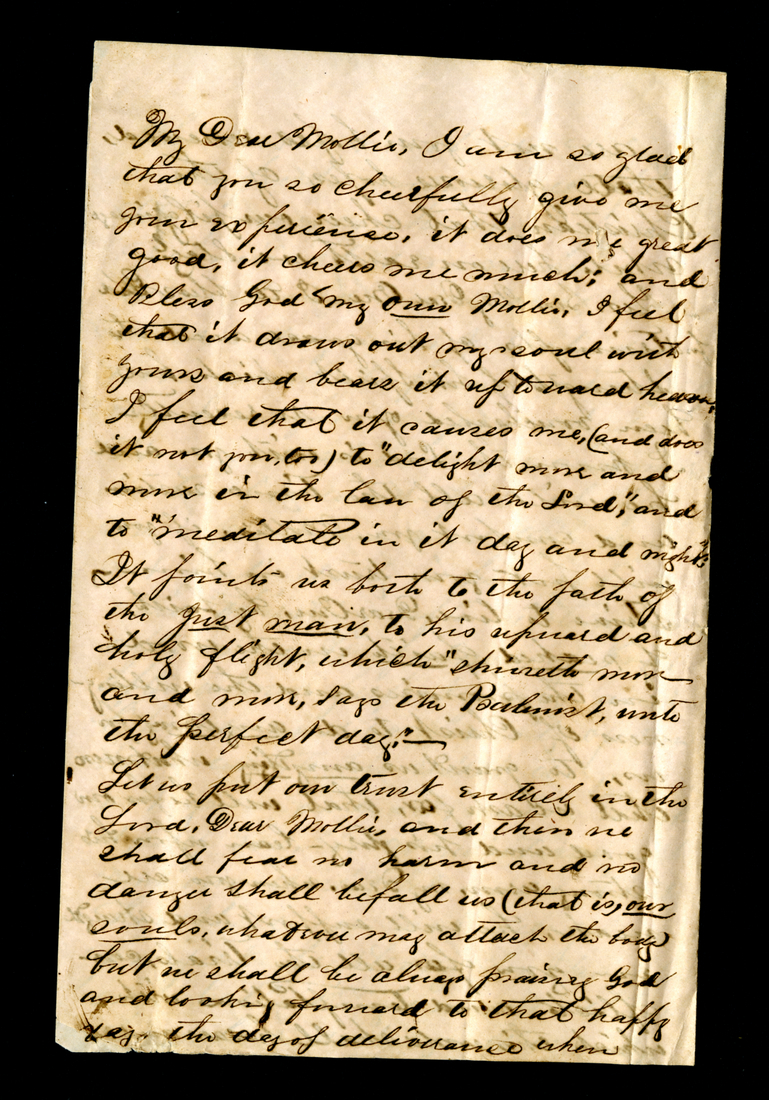 My Dear Mollie, I am so glad
that you so cheerfully give me
your experience, it does me great
good, it cheers me much; and
Bless God my own Mollie, I feel
that it draws out my soul with
yours and bears it up toward heaven.
I feel that it causes me, (and does
it not you, too) to "delight more and
more in the law of the Lord", and
to "meditate in it day and night".
It points us both to the path of
the just man, to his upward and
holy flight, which "shineth more
and more, says the Psalmist, unto
the perfect day."—
Let us put our trust entirely in the
Lord, Dear Mollie, and then we
shall fear no harm and no
danger shall befall us (that is, our
souls, whatever may attack the body)
but we shall be always praising God
and looking forward to that happy
day, the day of deliverance when